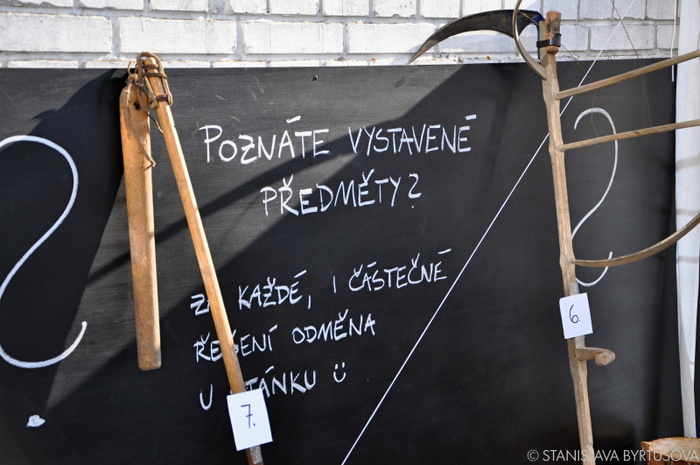 POZNÁTE VYSTAVENÉ
PŘEDMĚTY?
ZA KAŽDÉ, I ČÁSTEČNÉ
ŘEŠENÍ ODMĚNA
U STÁNKU ☺
7.
6.
© STANISLAVA BYRTUSOVÁ